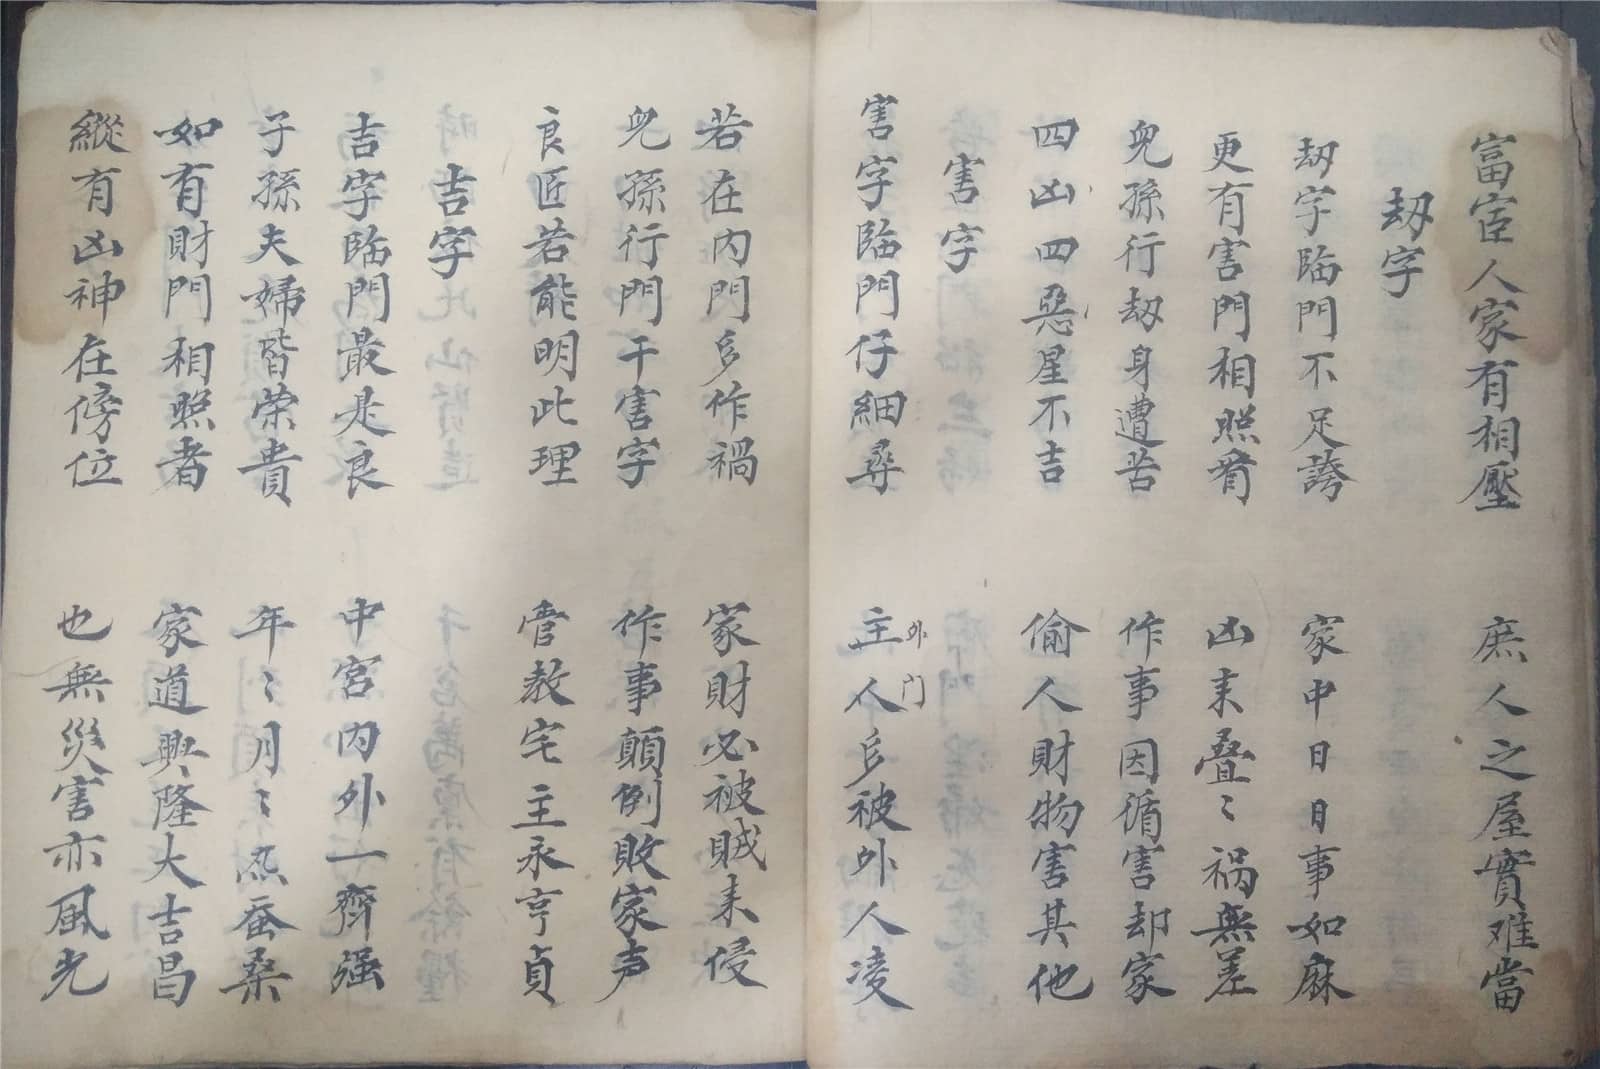 富宦人家有相壓 庶人之屋實难當
劫字
劫字臨門不足誇 家中日日事如麻
更有害門相照着 凶来叠〻禍無差
兒孫行劫身遭苦 作事因循害却家
四凶四惡星不吉 偷人財物害其他
害字
害字臨門仔細尋 主人多被外人凌
外门
若在內門多作禍 家財必被賊来侵
兒孫行門干害字 作事顛倒敗家声
良匠若能明此理 管教宅主永亨貞
吉字
吉字臨門最是良 中宫内外一齊强
子孫夫婦皆荣貴 年〻月〻蚕桑
如有財門相照者 家道興隆大吉昌
縱有凶神在傍位 也無災害亦風光